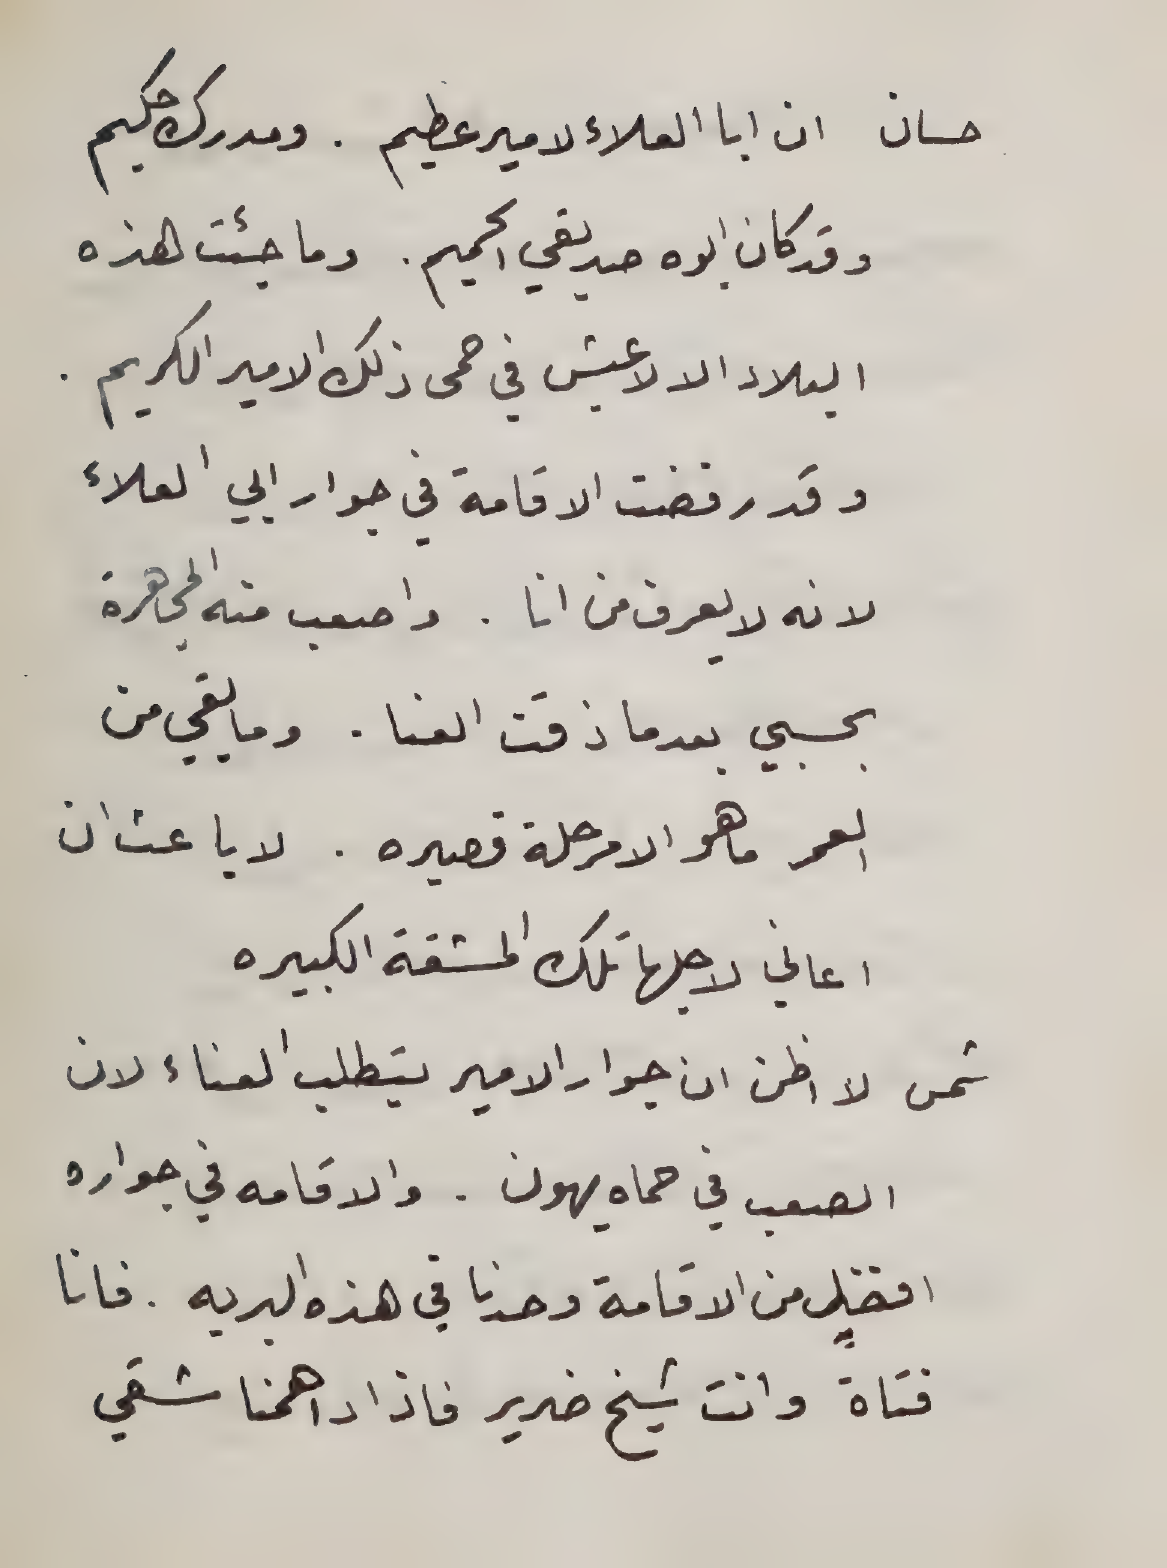 حسان ان ابا العلاء لامير عظيم . ومدرك حكيم
وقد كان ابوه صديقي الحميم . وما جئت هذه
البلاد الا لاعيش في حمى ذلك الامير الكريم .
وقد رفضت الاقامة في جوار ابي العلاء
لانه لا يعرف من انا . واصعب منه المجاهرة
بحسبي بعدما ذقت العنا . وما بقي من
العمر ما هو الا مرحلة قصيره . لا باعث ان
اعاني لاجلها تلك المشقة الكبيره
شمس لا اظن ان جوار الامير يتطلب العناء لان
الصعب في حماه يهون . والاقامه في جواره
افضل من الاقامة وحدنا في هذه البريه . فانا
فتاة وانت شيخ ضرير فاذا داهمنا شقي